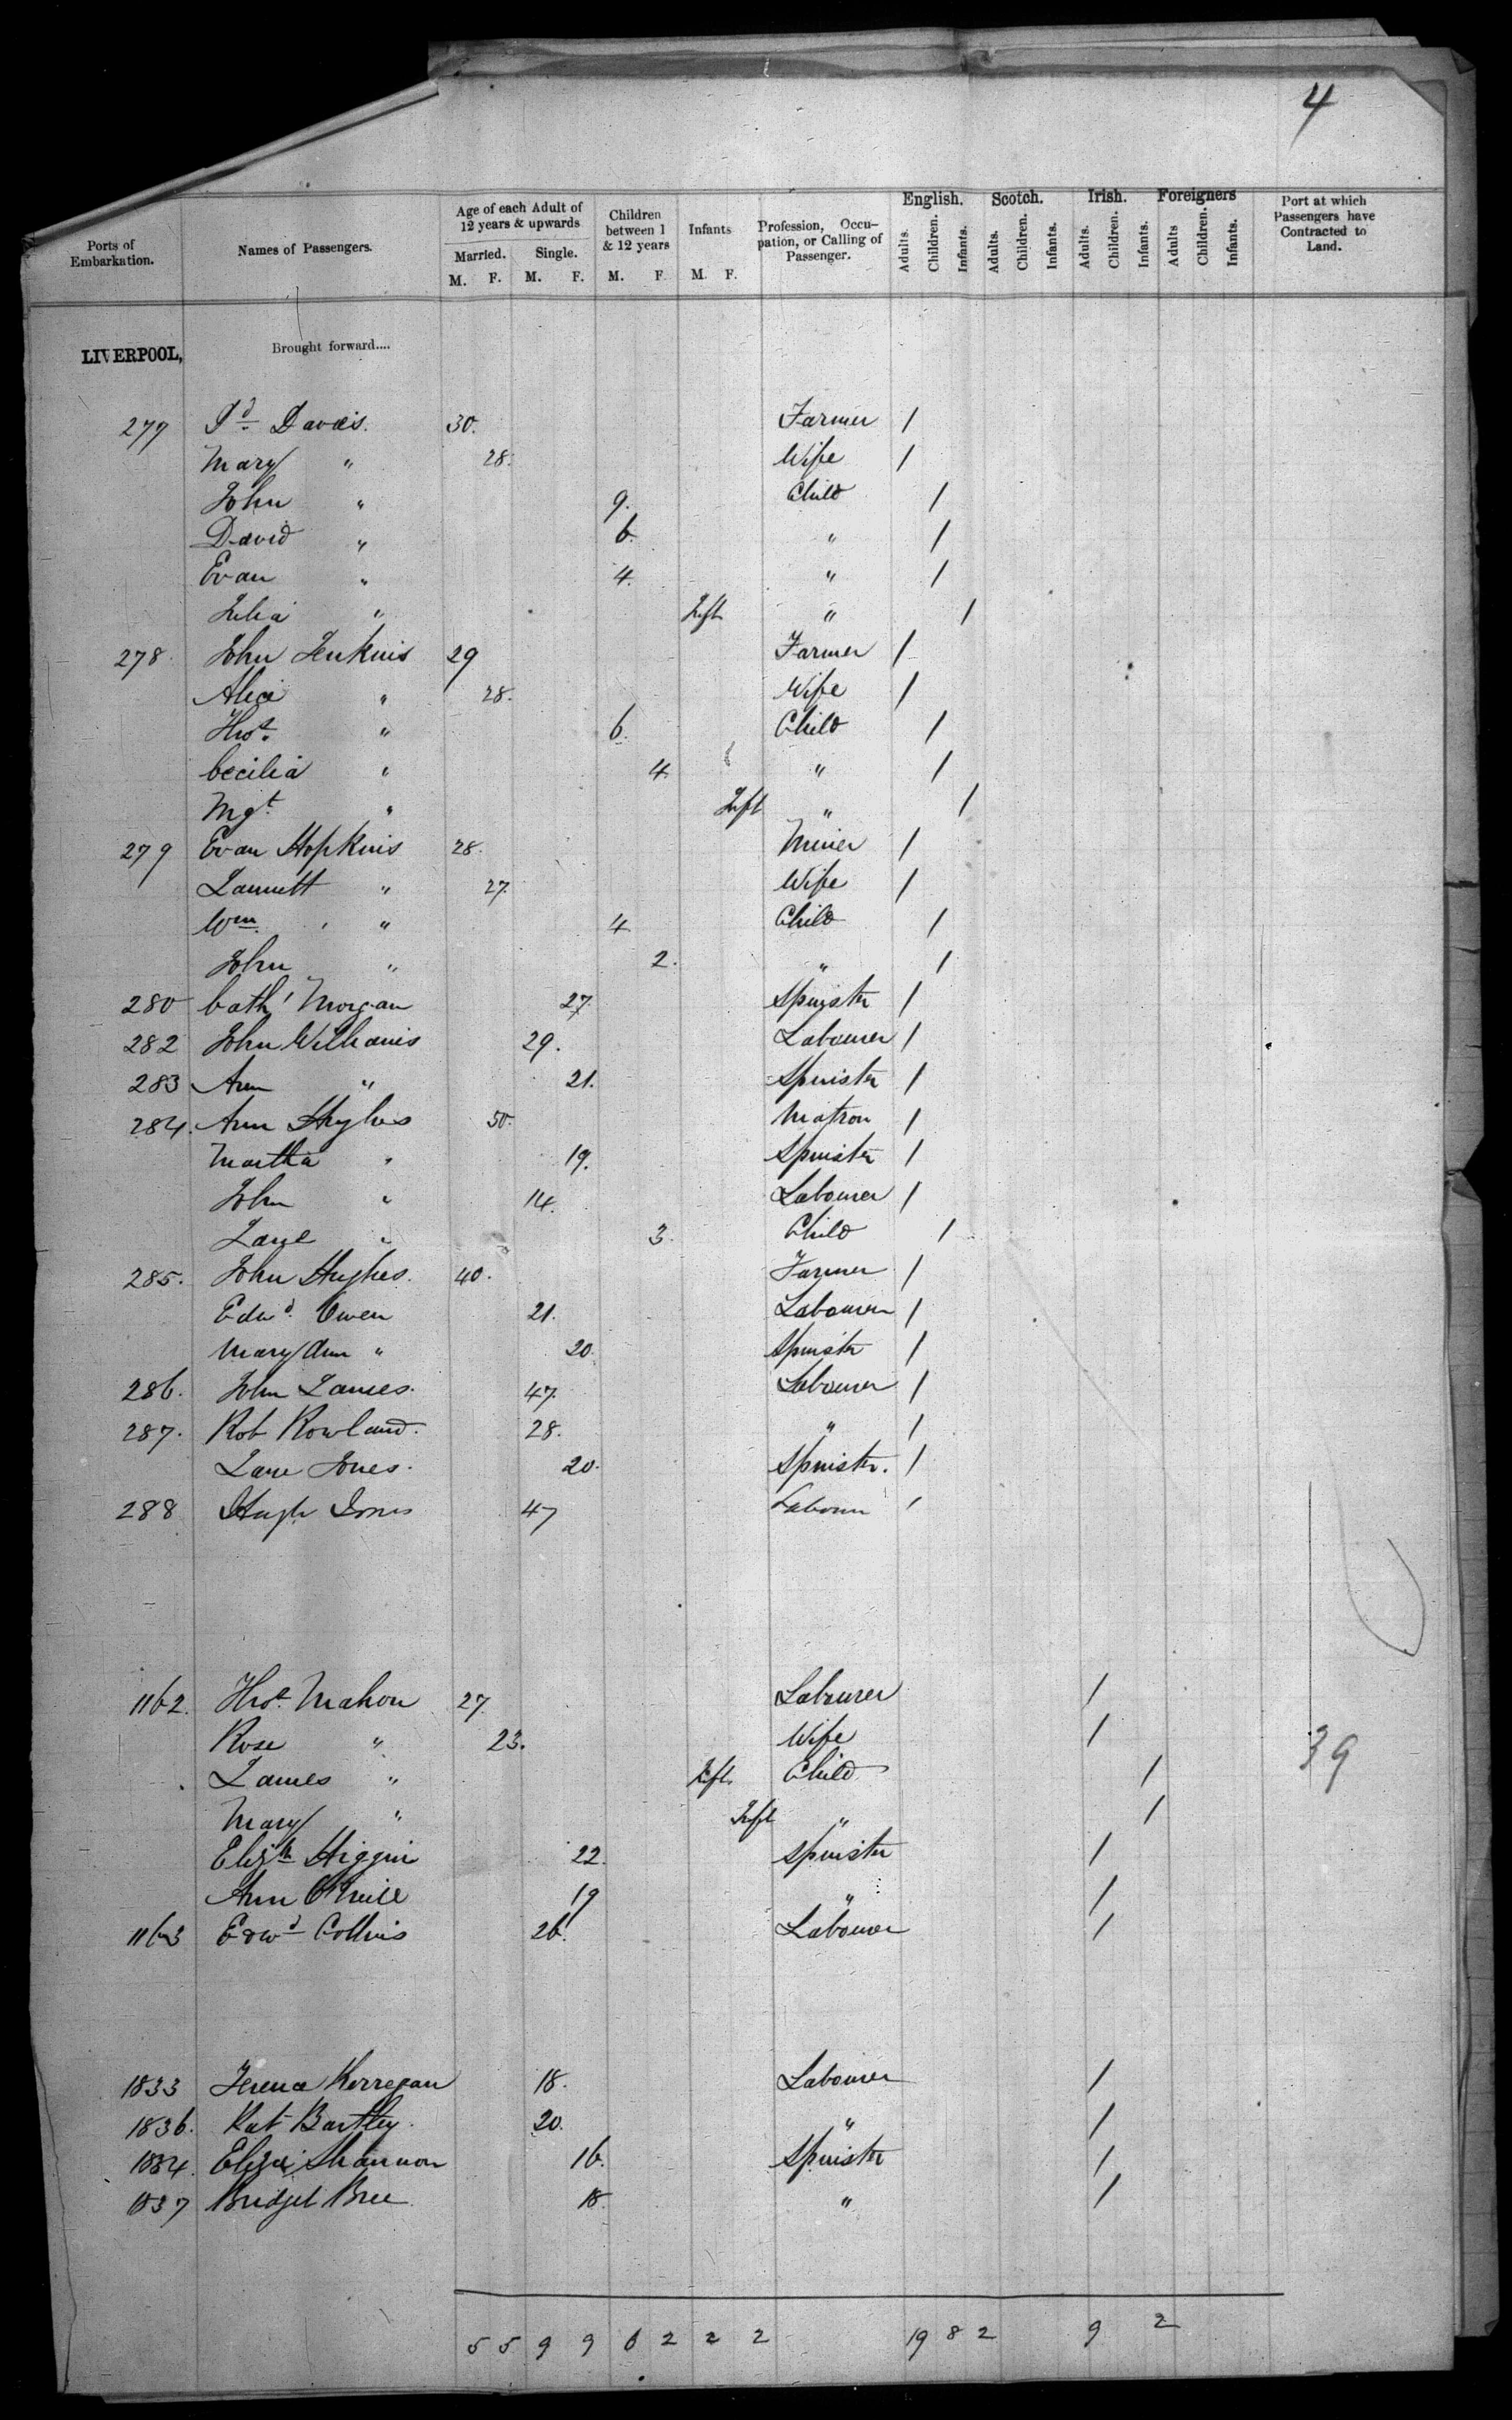 4
Ports of Embarkation. Names of Passengers. Age of each Adult of 12 years & upwards Married. M. F. Single. M. F. Children between 1 & 12 years M. F. Infants M. F. Profession, Occupation, or Calling of Passenger. English. Adults. Children. Infants. Scotch. Adults. Children. Infants. Irish. Adults. Children. Infants. Foreigners Adults Children. Infants. Port at which Passengers have Contracted to Land.
LIVERPOOL, Brought forward....
277 Davies. 30. Farmer 1
Mary " 28. Wife 1
John " 9. Child 1
David " 6. " 1
Evan " 4. " 1
" Inft " 1
278. John Jenkins 29 Farmer 1
Alice " 28. Wife 1
Thos. " 6. Child 1
Cecilia " 4. " 1
Mgt. " Inft " 1
279 Evan Hopkins 28. Miner 1
" 27. Wife 1
Wm. " 4 Child 1
John " 2. " 1
280 Cath' Morgan 27 Spinster 1
282 John Williams 29. Labourer 1
283 Ann " 21. Spinster 1
284. Ann Hughes 50. Matron 1
Martha " 19. Spinster 1
John " 14. Labourer 1
Jane " 3. Child 1
285. John Hughes. 40. Farmer 1
Edwd. Owen 21. Labourer 1
Mary Ann " 20. Spinster 1
286. John James. 47. Labourer 1
287. Rob Rowland. 28. " 1
Jane Jones. 20. Spinster. 1
288 Hugh Jones 47 Labourer 1
1162. Thos. Mahon 27. Labourer 1
Rose " 23. Wife 1
James " Inft. Child 1
Mary " Inft " 1
39
Elizth Higgin 22. Spinster 1
Ann O'Neill 19 " 1
1163 Edwd Collins 26. Labourer 1
1833 Terence Kerregan 18. Labourer 1
1836. Pat Bartley. 20. " 1
1834. Eliza Shannon 16. Spinster 1
1837 Bridget Bree 18. " 1
5 5 9 9 6 2 2 2 19 8 2 9 2